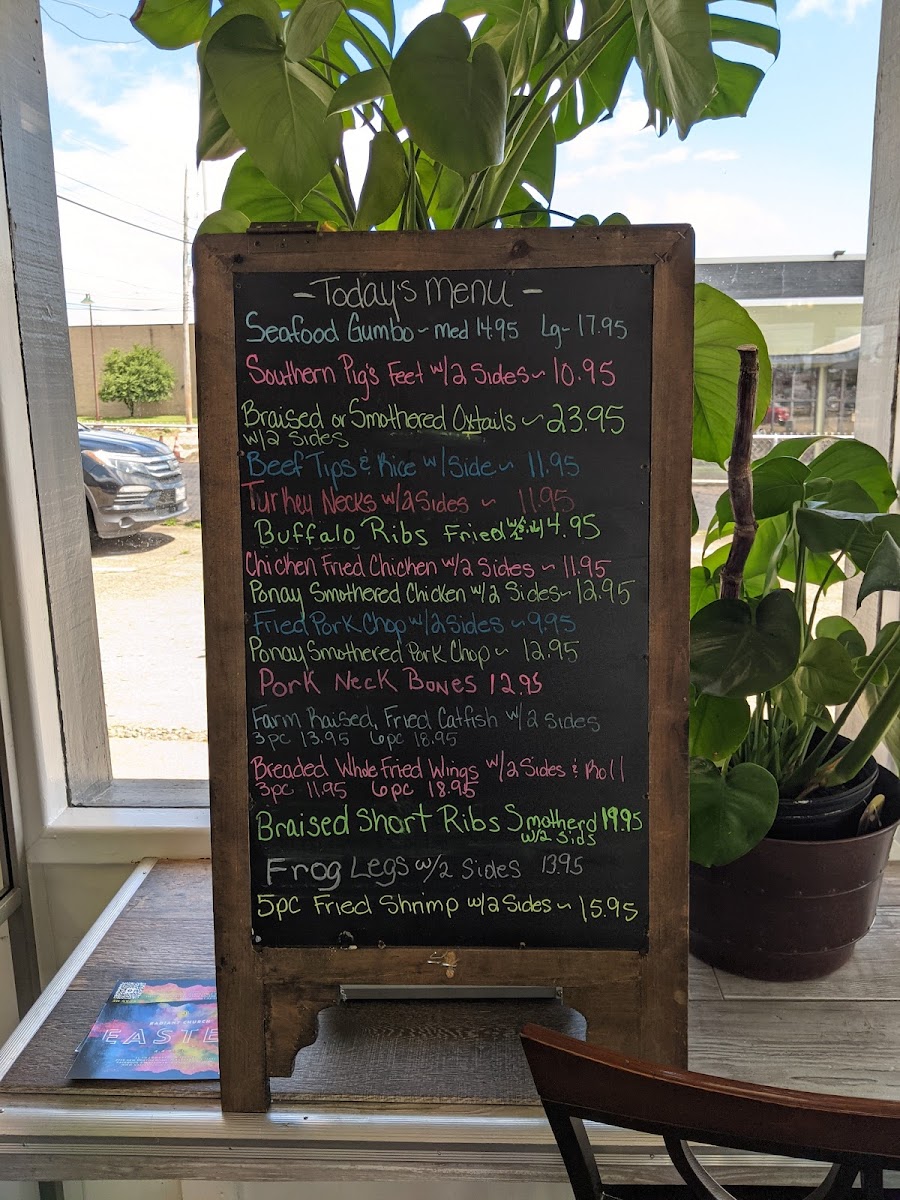 - Today's Menu -
Seafood Gumbo ~ med 14.95 Lg- 17.95
Southern Pig's Feet w/2 Sides ~ 10.95
Braised or Smothered Oxtails ~ 23.95
w/2 Sides
Beef Tips & Rice w/Side ~ 11.95
Turkey Necks w/2 Sides ~ 11.95
Buffalo Ribs Fried 14.95
Chicken Fried Chicken w/2 Sides ~ 11.95
Ponay Smothered Chicken w/2 Sides ~ 12.95
Fried Pork Chop w/2 Sides ~ 9.95
Ponay Smothered Pork Chop ~ 12.95
Pork Neck Bones 12.95
Farm Raised, Fried Catfish w/2 sides
3pc 13.95 6pc 18.95
Breaded Whole Fried Wings w/2 Sides & Roll
3pc 11.95 6pc 18.95
Braised Short Ribs Smotherd 19.95
w/2 Sids
Frog Legs w/2 Sides 13.95
5pc Fried Shrimp w/2 Sides ~ 15.95
RADIANT CHURCH
EASTE